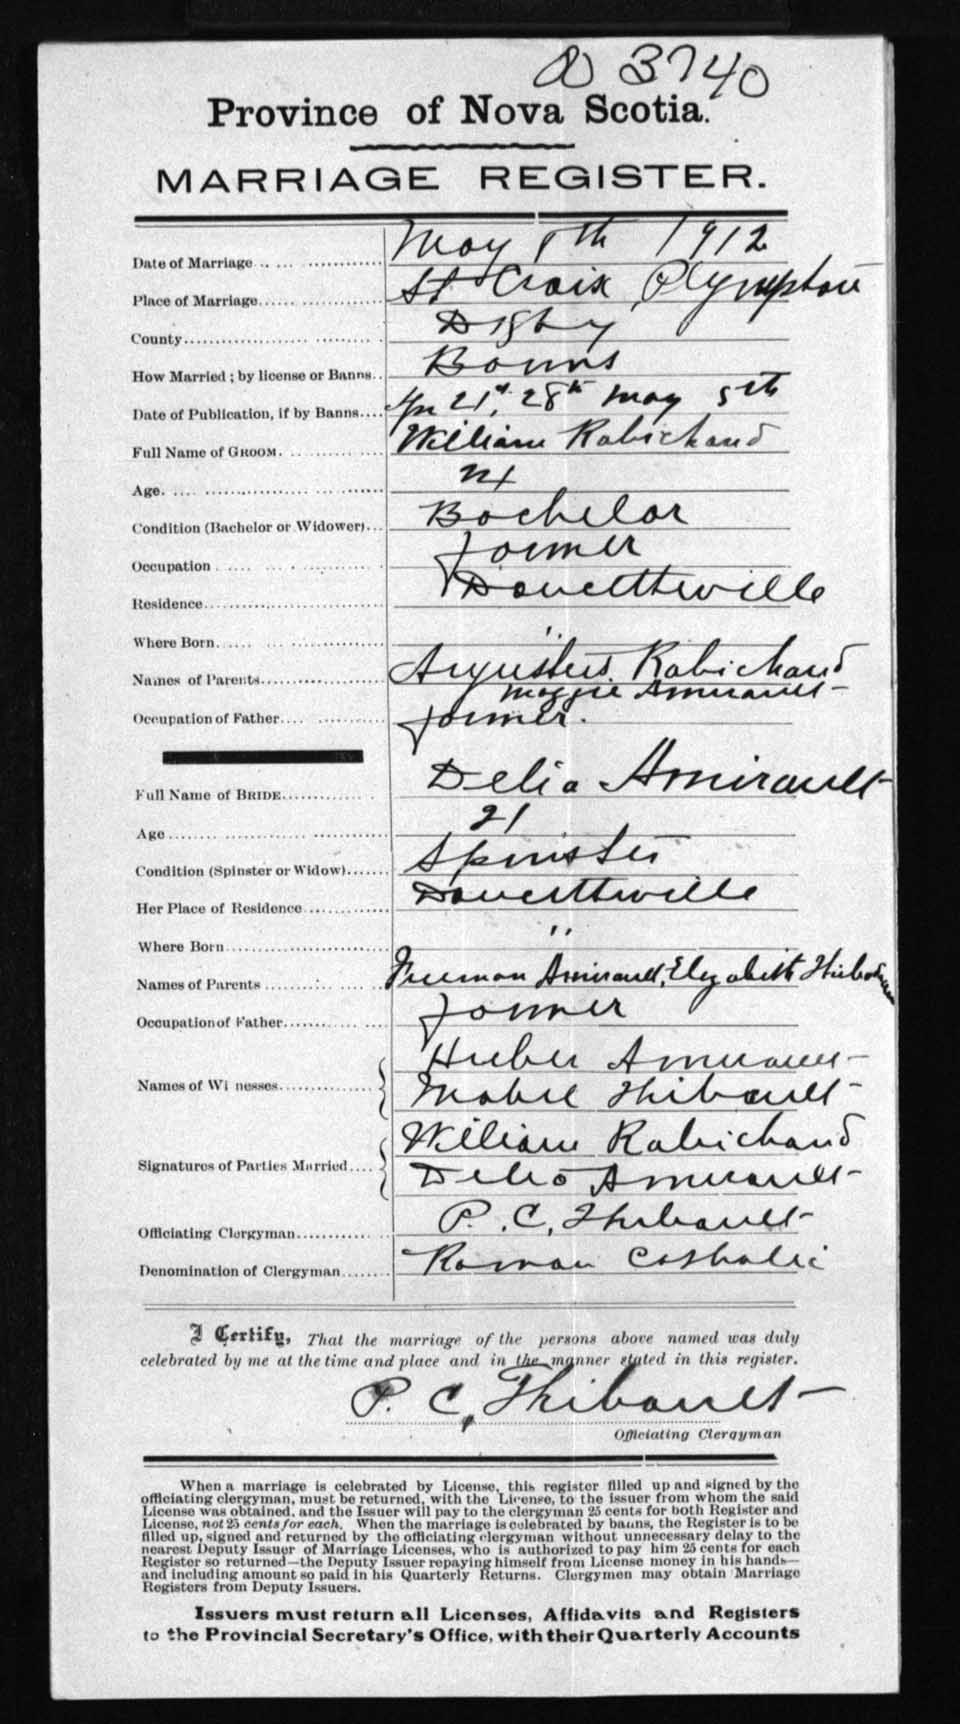 3740
Province of Nova Scotia.
MARRIAGE REGISTER.
Date of Marriage May 8th 1912
Place of Marriage St Croix Plympton
County Digby
How Married; by license or Banns Banns
Date of Publication, if by Banns Apr 21st, 28th May 5th
Full Name of GROOM. William Robichaud
Age.
Condition (Bachelor or Widower) Bachelor
Occupation Farmer
Residence Doucettville
Where Born "
Names of Parents Robichaud
Maggie Amirault
Occupation of Father Farmer.
Full Name of BRIDE Delia Amirault
Age 21
Condition (Spinster or Widow) Spinster
Her Place of Residence Doucettville
Where Born "
Names of Parents Freeman Amirault, Elizabeth Thibodeau
Occupation of Father Farmer
Names of Wi nesses Amirault
Mabel Thibault
Signatures of Parties Married William Robichaud
Delia Amirault
Officiating Clergyman P. C, Thibault
Denomination of Clergyman Roman Catholic
I Certify, That the marriage of the persons above named was duly
celebrated by me at the time and place and in the manner stated in this register.
P. C, Thibault
Officiating Clergyman
When a marriage is celebrated by License, this register filled up and signed by the
officiating clergyman, must be returned, with the License, to the issuer from whom the said
License was obtained, and the Issuer will pay to the clergyman 25 cents for both Register and
License, not 25 cents for each. When the marriage is celebrated by banns, the Register is to be
filled up, signed and returned by the officiating clergyman without unnecessary delay to the
nearest Deputy Issuer of Marriage Licenses, who is authorized to pay him 25 cents for each
Register so returned—the Deputy Issuer repaying himself from License money in his hands—
and including amount so paid in his Quarterly Returns. Clergymen may obtain Marriage
Registers from Deputy Issuers.
Issuers must return all Licenses, Affidavits and Registers
to the Provincial Secretary's Office, with their Quarterly Accounts